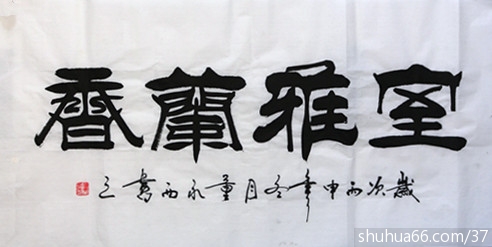 室雅蘭香
歲次丙申年冬月董永西書之
shuhua66.com/37